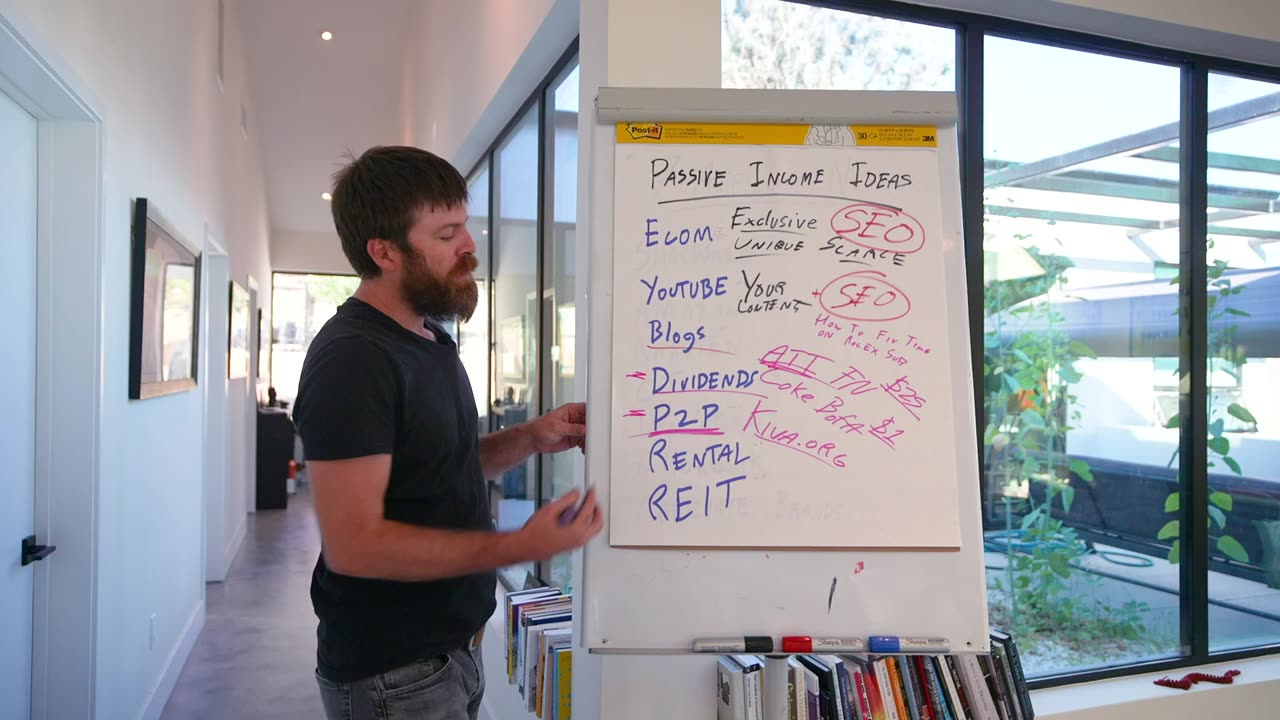 Post-it
30
3M
PASSIVE INCOME IDEAS
ECOM EXCLUSIVE SEO
UNIQUE SCARCE
YOUTUBE YOUR CONTENT + SEO
HOW TO FIX TIME
ON ROLEX SUB
Blogs
DIVIDENDS ATT FN $25
COKE $1
P2P KIVA.ORG
RENTAL
REIT
Sharpie
Sharpie